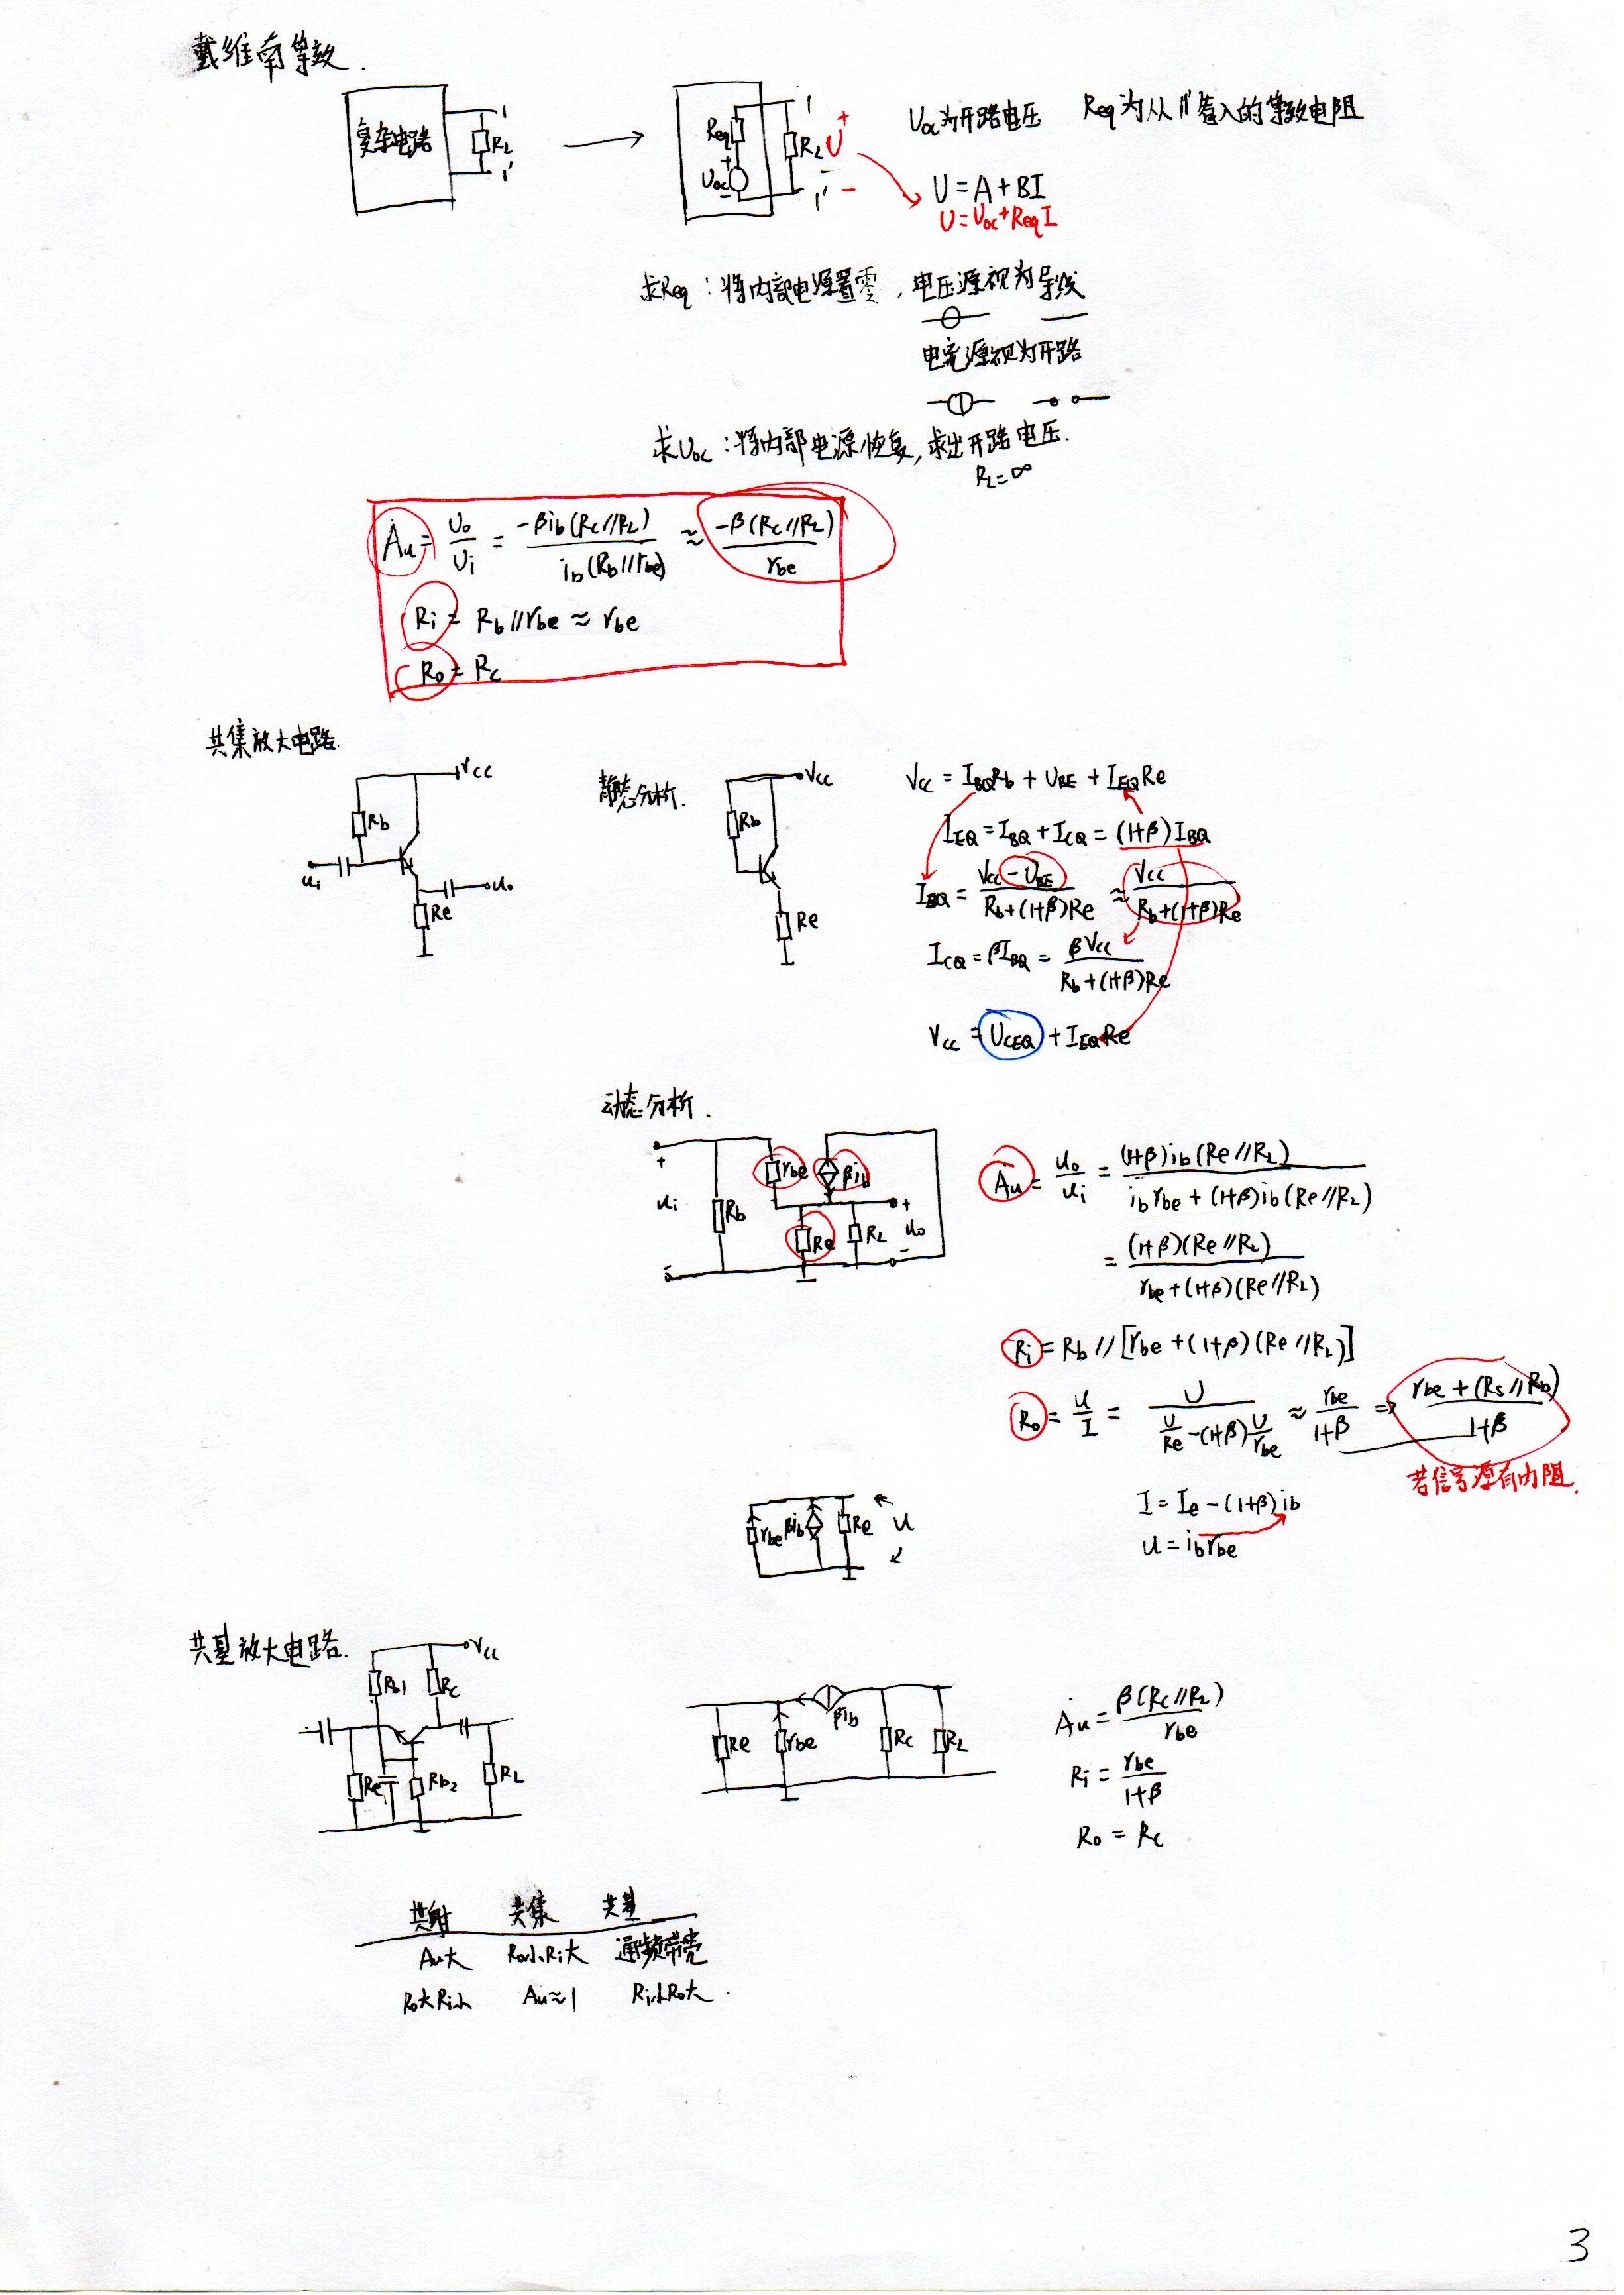 戴维南等效.
复杂电路 RL 1 1'
Req Uoc + - RL 1 1' U + -
Uoc为开路电压 Req为从11'看入的等效电阻
U=A+BI
U=Uoc+ReqI
求Req:将内部电源置零,电压源视为导线
电流源视为开路
求Uoc:将内部电源恢复,求出开路电压.
RL=∞
Au = Uo/Ui = -βib(Rc//RL)/ib(Rb//rbe) ≈ -β(Rc//RL)/rbe
Ri = Rb//rbe ≈ rbe
Ro = Rc
共集放大电路.
Vcc Rb ui uo Re
静态分析.
Vcc Rb Re
Vcc = IBQRb + UBE + IEQRe
IEQ = IBQ + ICQ = (1+β)IBQ
IBQ = (Vcc - UBE)/(Rb+(1+β)Re) ≈ Vcc/(Rb+(1+β)Re)
ICQ = βIBQ = βVcc/(Rb+(1+β)Re)
Vcc = UCEQ + IEQRe
动态分析.
+ ui - Rb rbe βib Re RL + uo -
Au = uo/ui = (1+β)ib(Re//RL)/(ibrbe+(1+β)ib(Re//RL))
= (1+β)(Re//RL)/(rbe+(1+β)(Re//RL))
Ri = Rb//[rbe+(1+β)(Re//RL)]
Ro = U/I = U/(U/Re-(1+β)U/rbe) ≈ rbe/(1+β) ⇒ (rbe+(Rs//Rb))/(1+β)
若信号源有内阻.
I = Ie-(1+β)ib
U = ibrbe
rbe βib Re U
共基放大电路.
Vcc Rb1 Rc Re Rb2 RL
Re rbe βib Rc RL
Au = β(Rc//RL)/rbe
Ri = rbe/(1+β)
Ro = Rc
共射 共集 共基
Au大 Ro小Ri大 通频带宽
Ro大Ri小 Au≈1 Ri小Ro大.
3